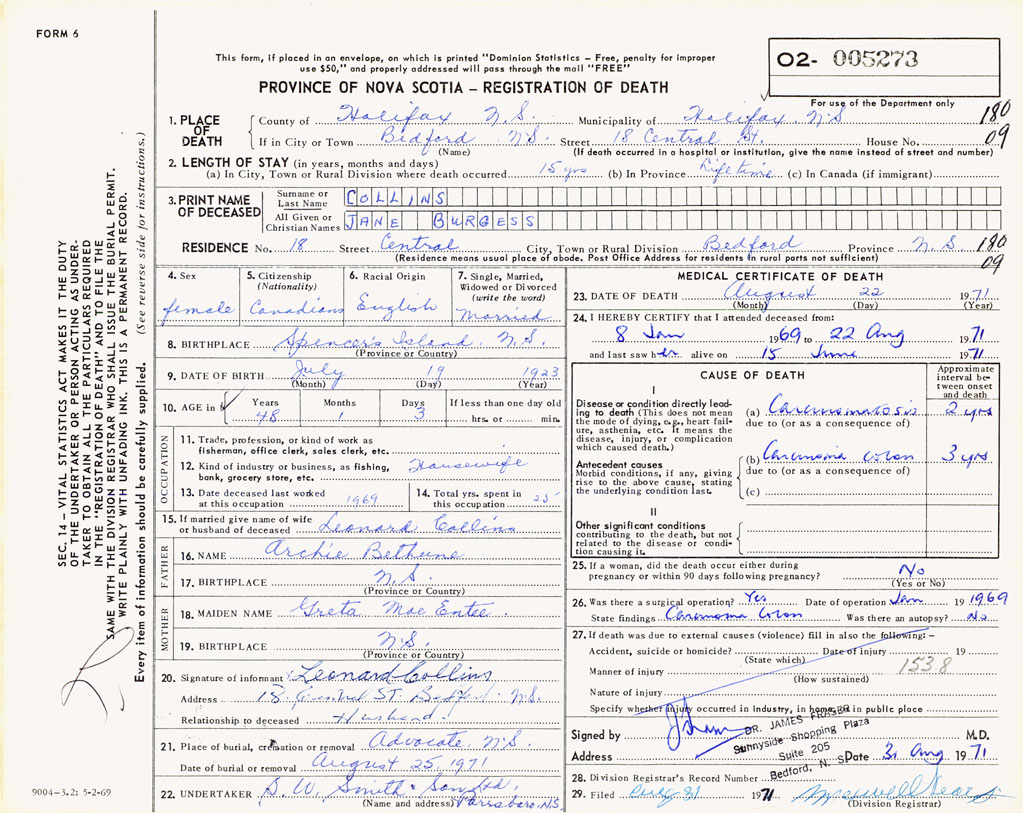 FORM 6
This form, if placed in an envelope, on which is printed "Dominion Statistics – Free, penalty for improper
use $50," and properly addressed will pass through the mail "FREE"
PROVINCE OF NOVA SCOTIA – REGISTRATION OF DEATH
02- 005273
For use of the Department only
1. PLACE OF DEATH
County of Halifax N.S. Municipality of Halifax N.S 180
If in City or Town Bedford N.S. Street 18 Central St. House No. 09
(Name) (If death occurred in a hospital or institution, give the name instead of street and number)
2. LENGTH OF STAY (in years, months and days)
(a) In City, Town or Rural Division where death occurred 15 yrs (b) In Province Lifetime (c) In Canada (if immigrant)
3. PRINT NAME OF DECEASED
Surname or Last Name COLLINS
All Given or Christian Names JANE BURGESS
RESIDENCE No. 18 Street Central City, Town or Rural Division Bedford Province N.S 180
(Residence means usual place of abode. Post Office Address for residents in rural parts not sufficient) 09
4. Sex
female
5. Citizenship
(Nationality)
Canadian
6. Racial Origin
English
7. Single, Married,
Widowed or Divorced
(write the word)
Married
8. BIRTHPLACE Spencer's Island, N.S.
(Province or Country)
9. DATE OF BIRTH July 19 1923
(Month) (Day) (Year)
10. AGE in
Years Months Days If less than one day old
48 1 3 hrs. or min.
OCCUPATION
11. Trade, profession, or kind of work as
fisherman, office clerk, sales clerk, etc.
12. Kind of industry or business, as fishing,
bank, grocery store, etc. Housewife
13. Date deceased last worked
at this occupation 1969
14. Total yrs. spent in
this occupation 25
15. If married give name of wife
or husband of deceased Leonard Collins
FATHER
16. NAME Archie Bethune
17. BIRTHPLACE N.S.
(Province or Country)
MOTHER
18. MAIDEN NAME Greta Mac Entee
19. BIRTHPLACE N.S.
(Province or Country)
20. Signature of informant Leonard Collins
Address 18 Central ST. Bedford N.S.
Relationship to deceased Husband.
21. Place of burial, cremation or removal Advocate, N.S.
Date of burial or removal August 25, 1971
22. UNDERTAKER S. W. Smith & Son Ltd.
(Name and address) Parrsboro, N.S.
MEDICAL CERTIFICATE OF DEATH
23. DATE OF DEATH August 22 1971
(Month) (Day) (Year)
24. I HEREBY CERTIFY that I attended deceased from:
8 Jan 1969 to 22 Aug 1971
and last saw her alive on 15 June 1971
CAUSE OF DEATH
Approximate
interval be-
tween onset
and death
I
Disease or condition directly lead-
ing to death (This does not mean
the mode of dying, e.g., heart fail-
ure, asthenia, etc. It means the
disease, injury, or complication
which caused death.)
(a) Carcinomatosis 2 yrs
due to (or as a consequence of)
Antecedent causes
Morbid conditions, if any, giving
rise to the above cause, stating
the underlying condition last.
(b) Carcinoma colon 3 yrs
due to (or as a consequence of)
(c)
II
Other significant conditions
contributing to the death, but not
related to the disease or condi-
tion causing it.
25. If a woman, did the death occur either during
pregnancy or within 90 days following pregnancy? No
(Yes or No)
26. Was there a surgical operation? Yes Date of operation Jan 1969
State findings Carcinoma Colon Was there an autopsy? No
27. If death was due to external causes (violence) fill in also the following: –
Accident, suicide or homicide? Date of injury 19
(State which)
Manner of injury 153.8
(How sustained)
Nature of injury
Specify whether injury occurred in industry, in home, or in public place
Signed by M.D.
DR. JAMES FRASER
Sunnyside Shopping Plaza
Suite 205
Bedford, N. S.
Address Date 31 Aug 1971
28. Division Registrar's Record Number
29. Filed Aug 31 1971
(Division Registrar)
SEC. 14 – VITAL STATISTICS ACT MAKES IT THE DUTY
OF THE UNDERTAKER OR PERSON ACTING AS UNDER-
TAKER TO OBTAIN ALL THE PARTICULARS REQUIRED
IN THE "REGISTRATION OF DEATH" AND TO FILE THE
SAME WITH THE DIVISION REGISTRAR WHO SHALL ISSUE THE BURIAL PERMIT.
WRITE PLAINLY WITH UNFADING INK. THIS IS A PERMANENT RECORD.
Every item of information should be carefully supplied. (See reverse side for instructions.)
9004-3.2: 5-2-69